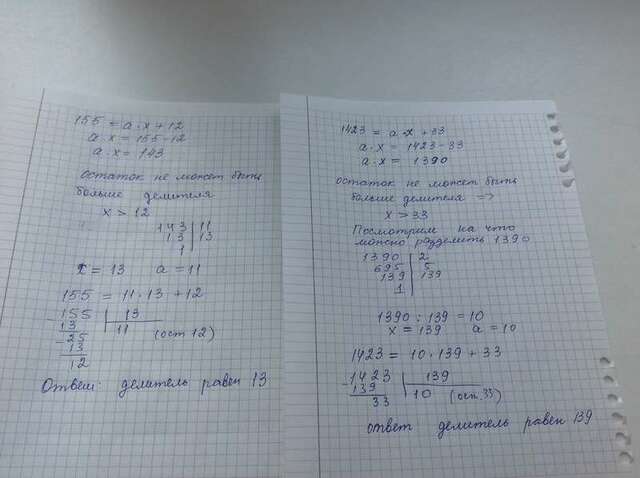 155 = a · x + 12
a · x = 155 - 12
a · x = 143
Остаток не может быть
больше делителя
x > 12
143 | 11
13 | 13
1
x = 13 a = 11
155 = 11 · 13 + 12
155 | 13
13 | 11 (ост 12)
25
13
12
Ответ: делитель равен 13
1423 = a · x + 33
a · x = 1423 - 33
a · x = 1390
Остаток не может быть
больше делителя =>
x > 33
Посмотрим на что
можно разделить 1390
1390 | 2
695 | 5
139 | 139
1
1390 : 139 = 10
x = 139 a = 10
1423 = 10 · 139 + 33
1423 | 139
139 | 10 (ост. 33)
33
ответ делитель равен 139